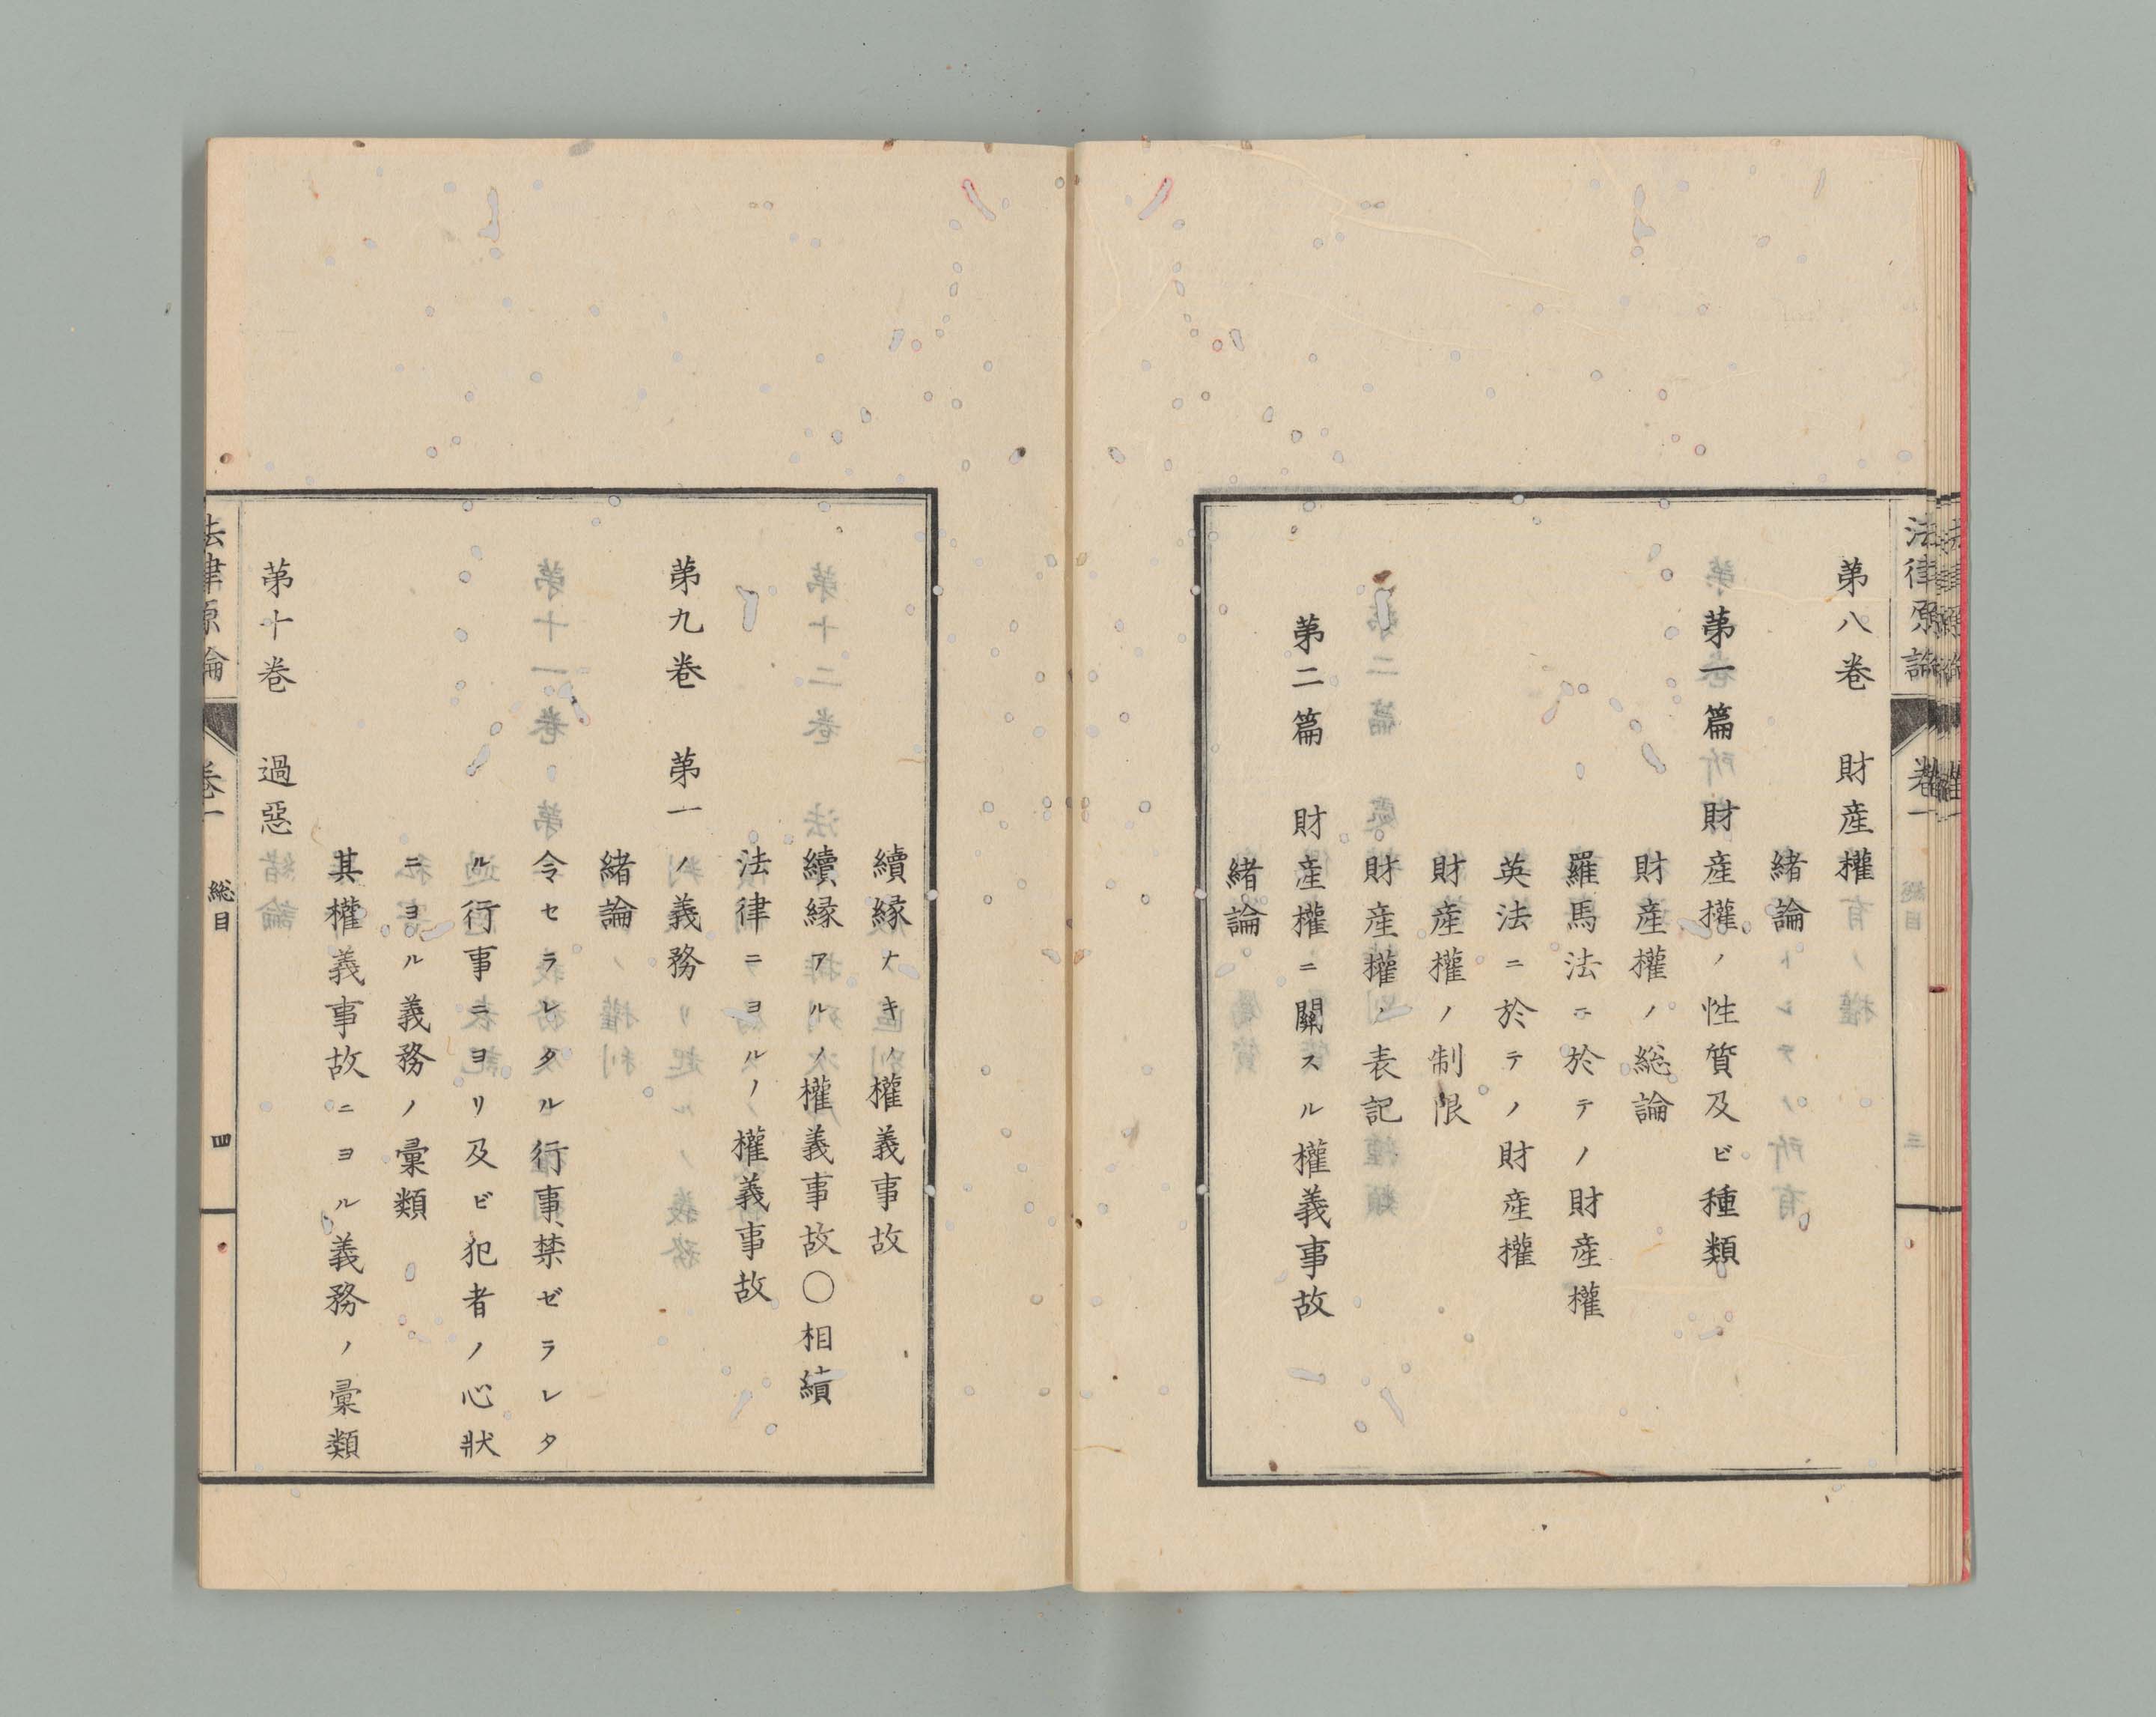 法律原論 卷一
第八卷 財産權
緒論
第一篇 財産權ノ性質及ビ種類
財産權ノ総論
羅馬法ニ於テノ財産權
英法ニ於テノ財産權
財産權ノ制限
財産權ノ表記
第二篇 財産權ニ關スル權義事故
緒論
續縁ナキノ權義事故
續縁アルノ權義事故〇相續
法律ニヨルノ權義事故
第九卷 第一ノ義務
緒論
令セラレタル行事禁ゼラレタ
ル行事ニヨリ及ビ犯者ノ心狀
ニヨル義務ノ彙類
其權義事故ニヨル義務ノ彙類
第十卷 過惡
法律原論 卷一 総目 四